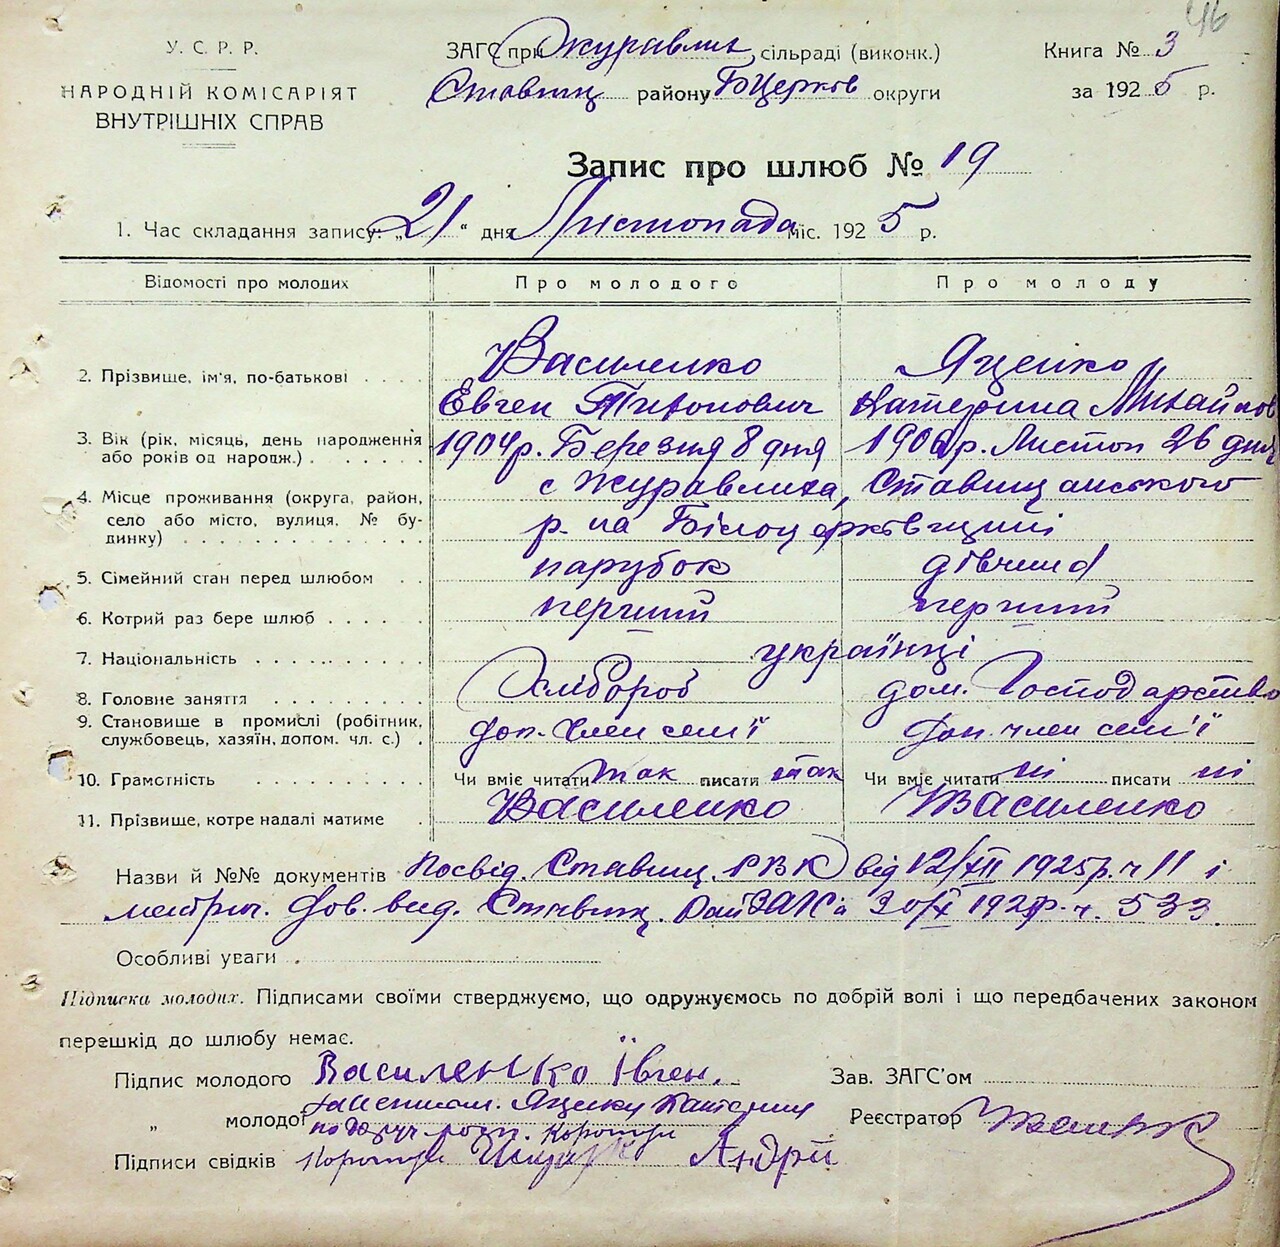 46
У. С. Р. Р.
НАРОДНІЙ КОМІСАРІЯТ
ВНУТРІШНІХ СПРАВ
ЗАГС при Журавлих сільраді (виконк.)
Ставищ району БЦерков округи
Книга № 3
за 1925 р.
Запис про шлюб № 19
1. Час складання запису: „21“ дня Листопада міс. 1925 р.
Відомості про молодих Про молодого Про молоду
2. Прізвище, ім'я, по-батькові . . . .
Василенко
Евген Тихонович
Яценко
Катерина Михайлов
3. Вік (рік, місяць, день народження
або років од народж.) . . . . . .
1904 р. Березня 8 дня
1906 р. Листоп 26 дня
4. Місце проживання (округа, район,
село або місто, вулиця, № бу-
динку)
с Журавлиха, Ставищанського
р. на Білоцерківщині
5. Сімейний стан перед шлюбом . .
парубок
дівчина
6. Котрий раз бере шлюб . . . . .
перший
перший
7. Національність
українці
8. Головне заняття
Хлібороб
дом. Господарство
9. Становище в промислі (робітник,
службовець, хазяїн, допом. чл. с.) .
доп. член сем'ї
Доп. член сем'ї
10. Грамотність
Чи вміє читати так писати так
Чи вміє читати ні писати ні
11. Прізвище, котре надалі матиме
Василенко
Василенко
Назви й №№ документів Посвід. Ставищ. РВК від 12/XII 1925 р. ч 11 і
метрич. вид. Ставищ. РайЗАГС 30/X р. ч. 533.
Особливі уваги
Підписка молодих. Підписами своїми стверджуємо, що одружуємось по добрій волі і що передбачених законом
перешкід до шлюбу немає.
Підпис молодого Василенко Івген.
Зав. ЗАГС'ом
„ молодої Яценку
Реєстратор
Підписи свідків Андрій